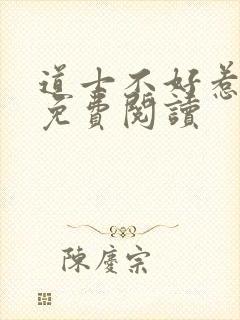 道士不好惹
免費閱讀
陳慶宗